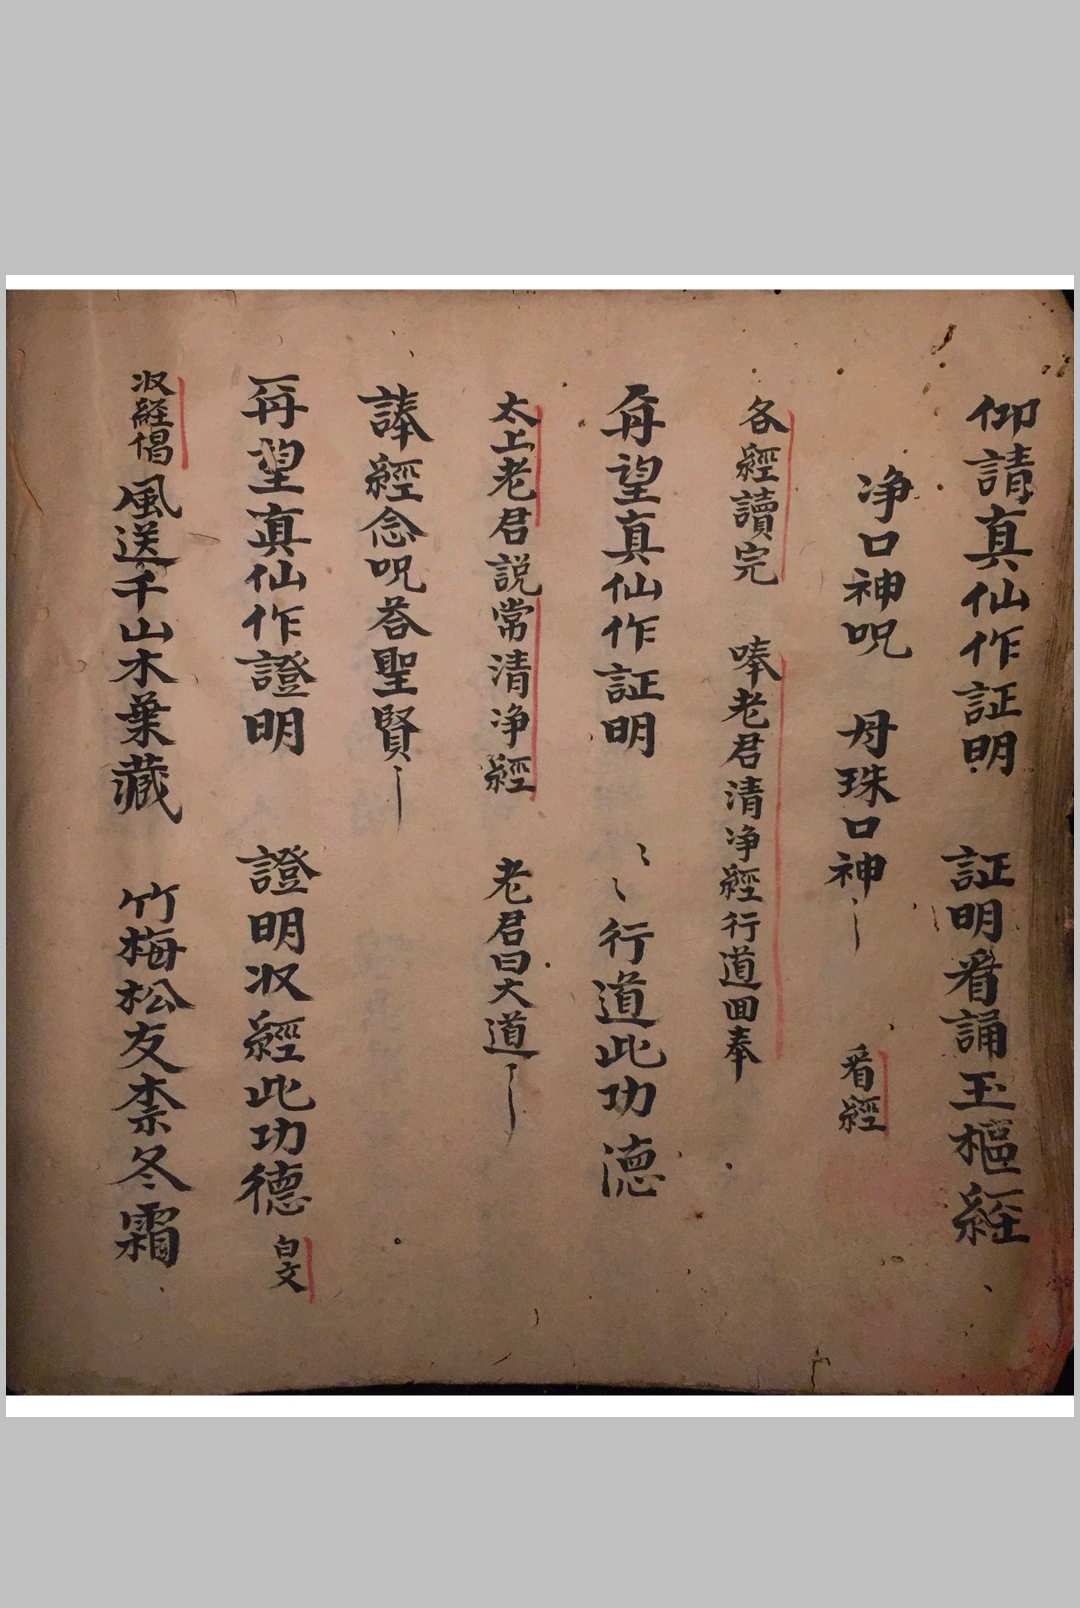 仰請真仙作証明　証明看誦玉樞經
净口神呪　丹珠口神　看經
各經讀完　唪老君清净經行道回奉
再望真仙作証明　行道此功德
太上老君説常清净經　老君曰大道
諽經念呪答聖賢
再望真仙作證明　證明收經此功德　白文
收經偈　風送千山木葉藏　竹梅松友柰冬霜